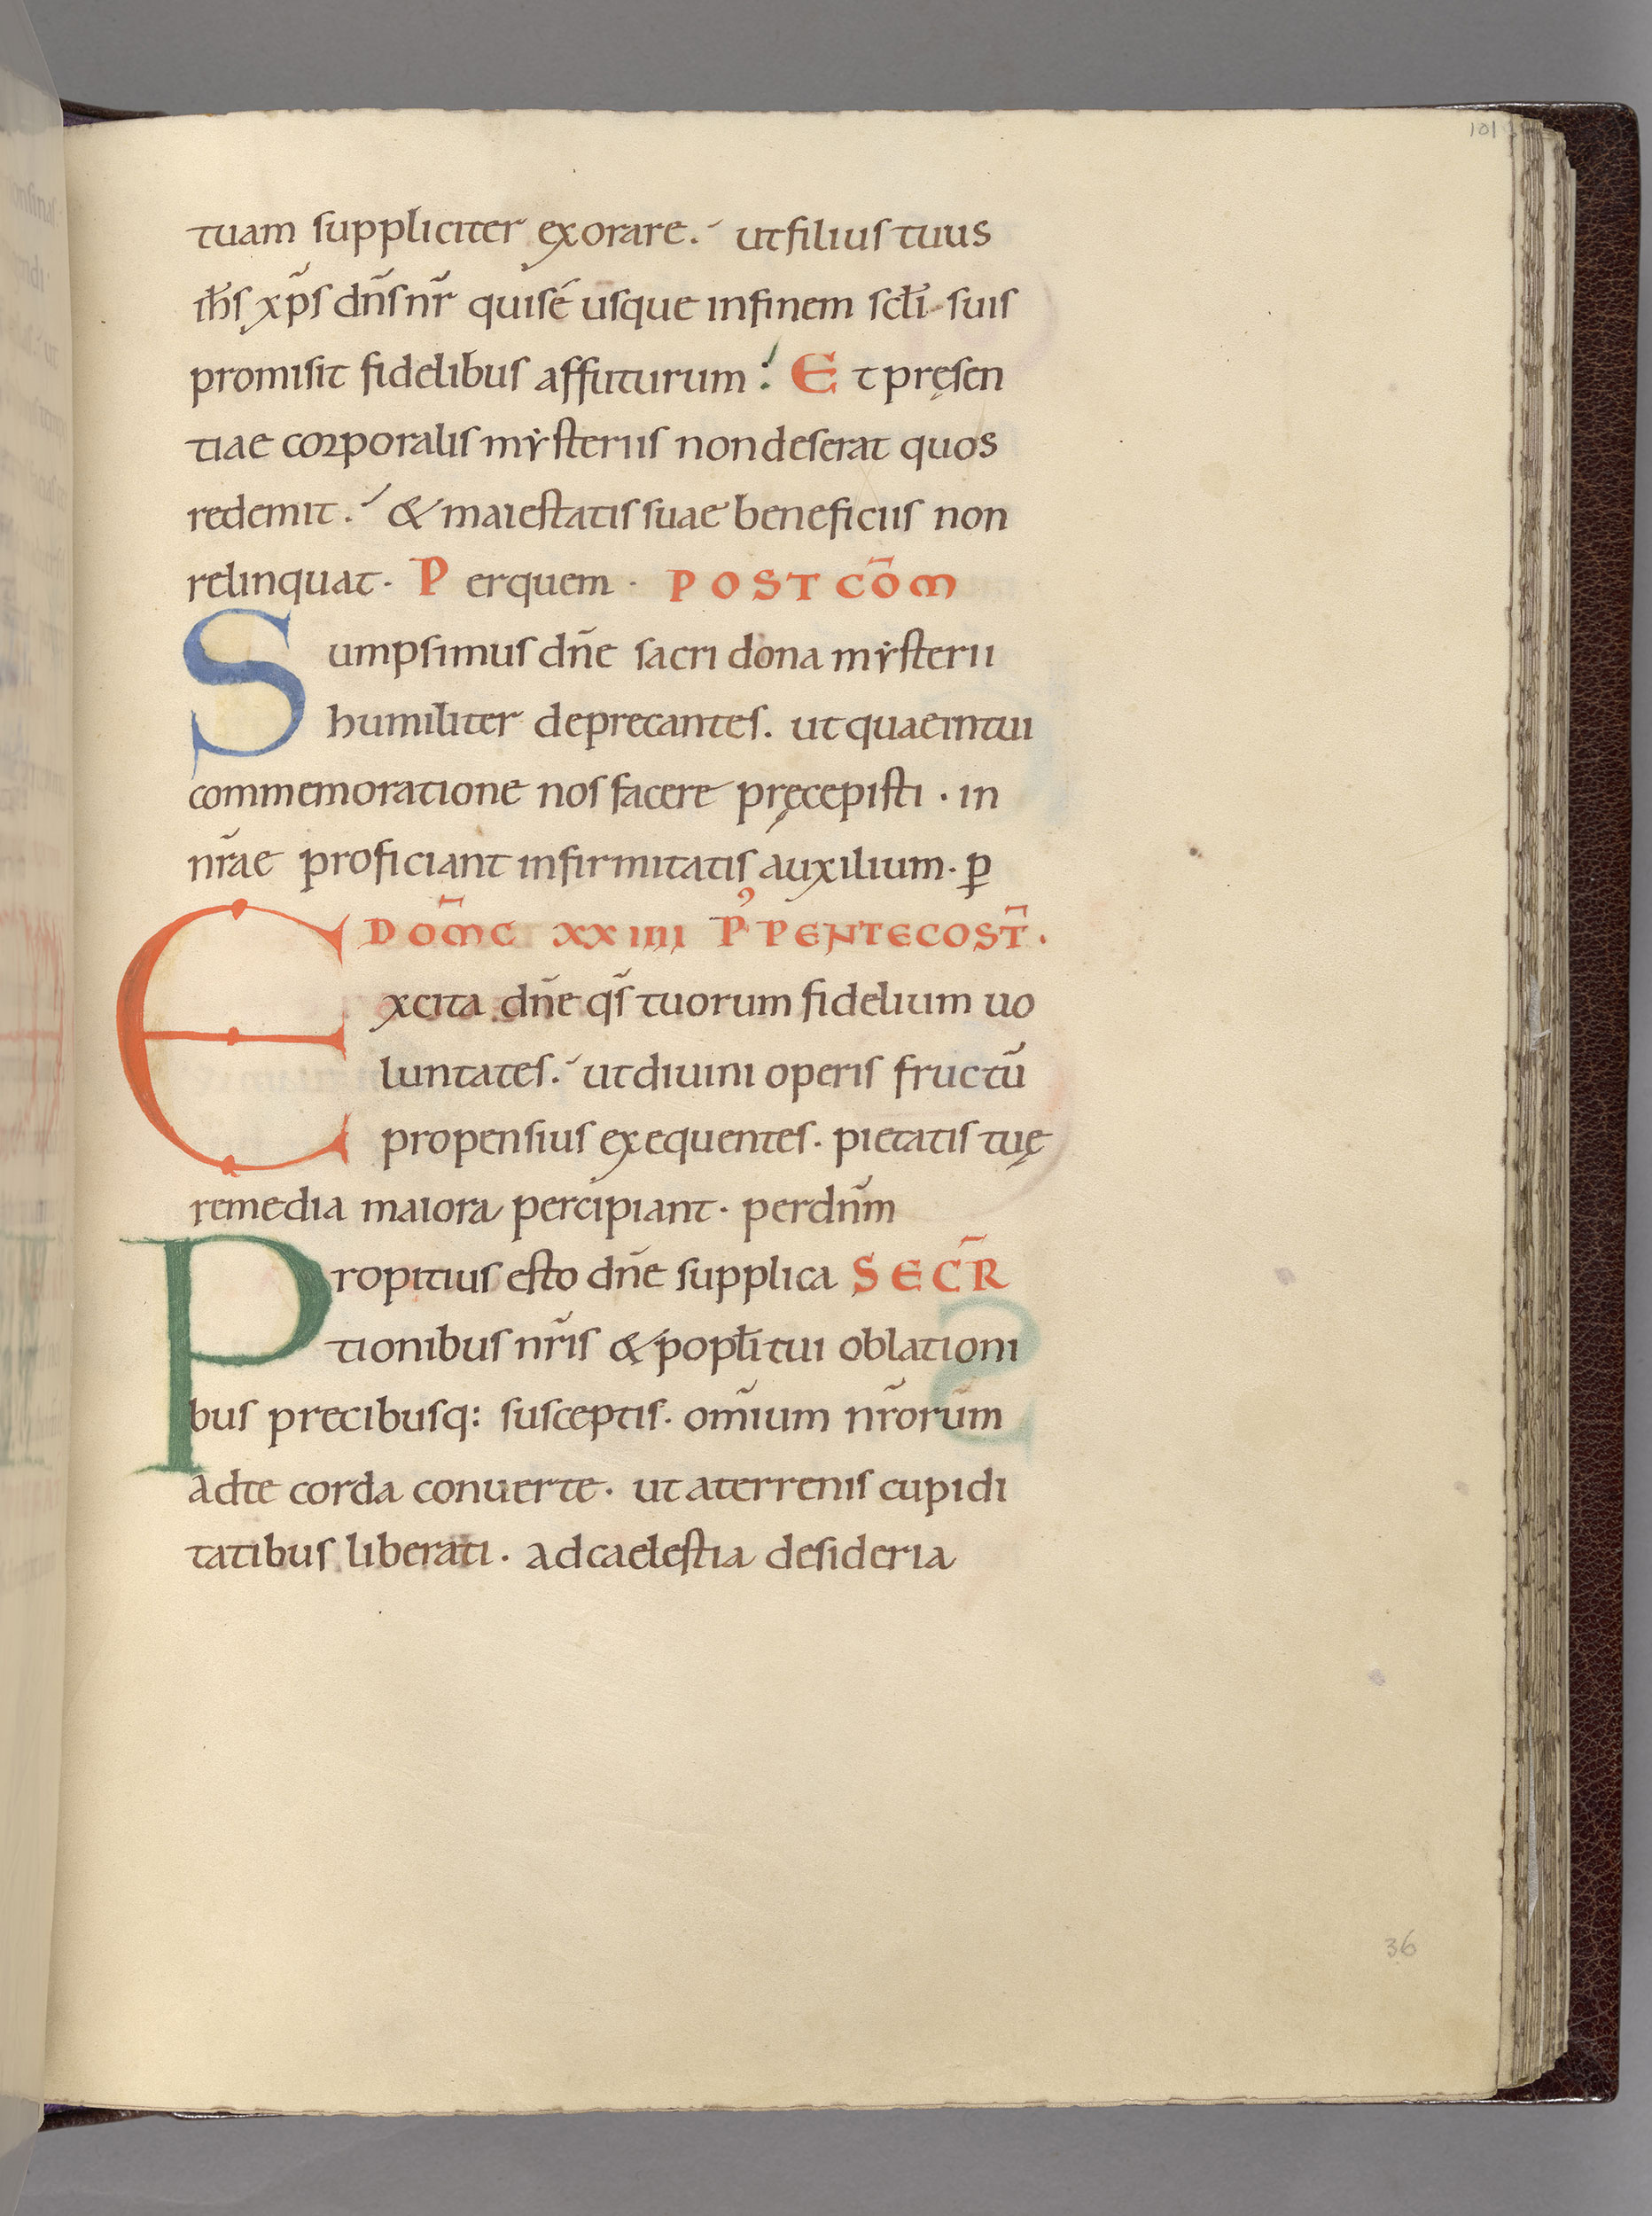 101
tuam suppliciter exorare. ut filius tuus
ih̅s xp̅s dn̅s nr̅ qui sé usque in finem scl̅i suis
promisit fidelibus affuturum: Et pręsen
tiae corporalis mẏsteriis non deserat quos
redemit. & maiestatis suae beneficiis non
relinquat · Per quem · POST CO̅M
Sumpsimus dn̅e sacri dona mẏsterii
humiliter deprecantes. ut quae in tui
commemoratione nos facere pręcepisti · in
nr̅ae proficiant infirmitatis auxilium · ꝑ
DOM̅C XXIIII P' PENTECOST̅ ·
Excita dn̅e qs̅ tuorum fidelium uo
luntates. ut diuini operis fructu̅
propensius exequentes · pietatis tuę
remedia maiora percipiant · per dn̅m
Propitius esto dn̅e supplica SECR̅
tionibus nr̅is & popl̅i tui oblationi
bus precibusq: susceptis · om̅ium nr̅orum
ad te corda conuerte · ut a terrenis cupidi
tatibus liberati · ad caelestia desideria
36